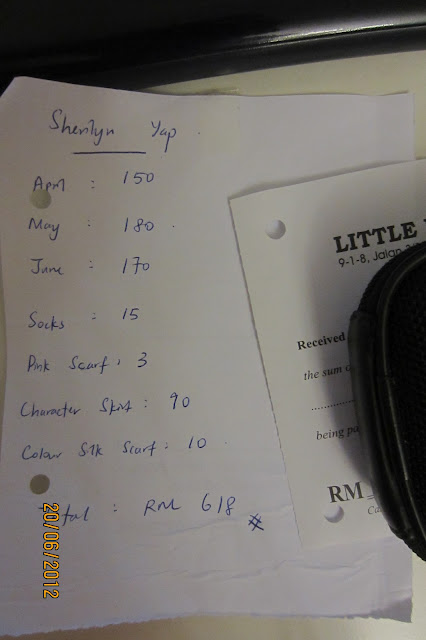 Sherilyn Yap.
April : 150
May : 180.
June : 170
Socks : 15
Pink Scarf : 3
Character Skirt : 90
Colour Silk Scarf : 10
Total : RM 618
LITTLE
9-1-8, Jalan
Received
the sum
being
RM
20/06/2012